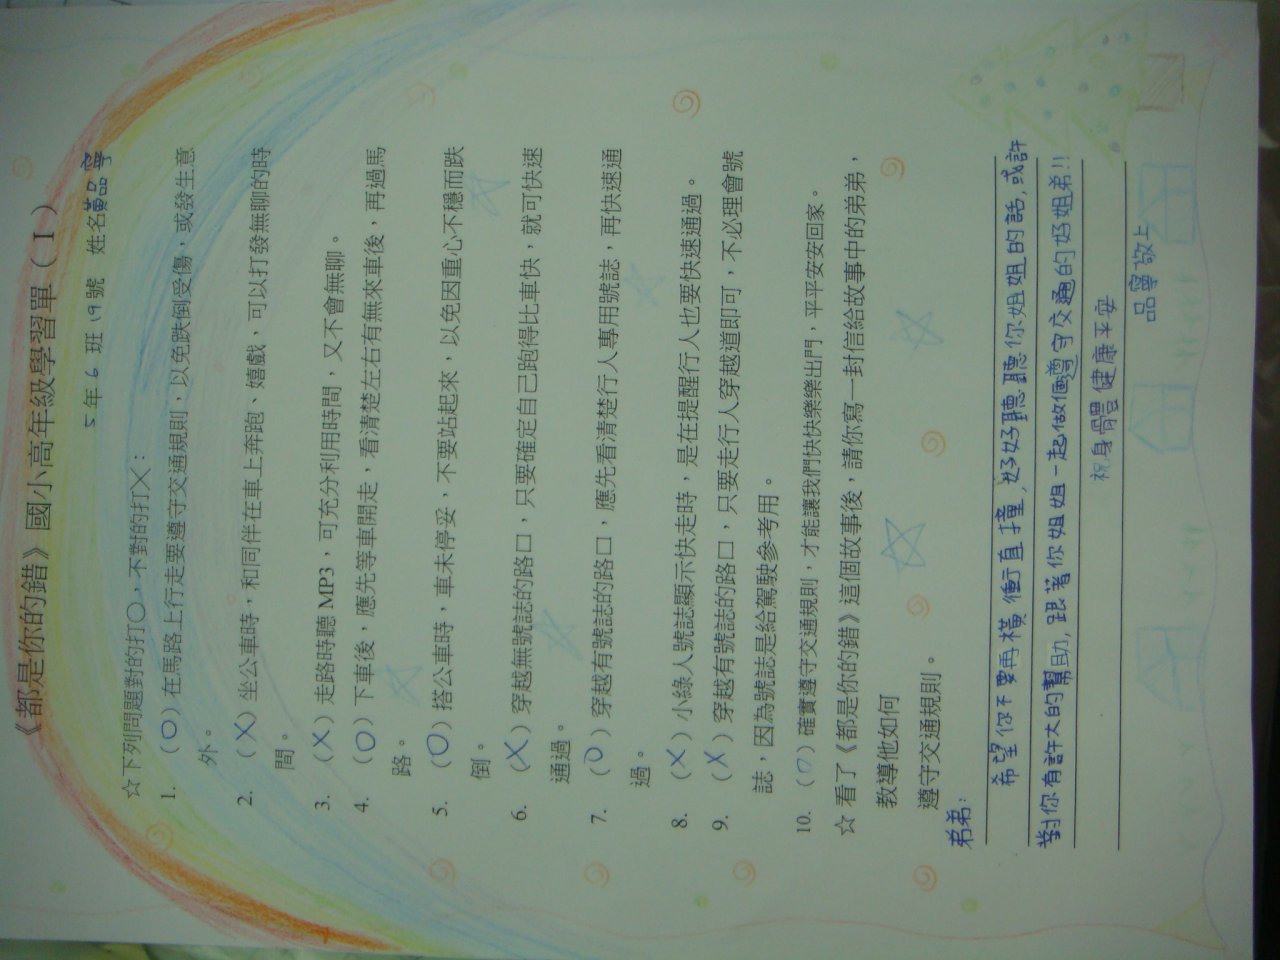 《都是你的錯》國小高年級學習單（I）
5年6班19號 姓名黃品寧
☆下列問題對的打○，不對的打╳：
1. （O）在馬路上行走要遵守交通規則，以免跌倒受傷，或發生意
外。
2. （X）坐公車時，和同伴在車上奔跑、嬉戲，可以打發無聊的時
間。
3. （X）走路時聽 MP3，可充分利用時間，又不會無聊。
4. （O）下車後，應先等車開走，看清楚左右有無來車後，再過馬
路。
5. （O）搭公車時，車未停妥，不要站起來，以免因重心不穩而跌
倒。
6. （X）穿越無號誌的路口，只要確定自己跑得比車快，就可快速
通過。
7. （O）穿越有號誌的路口，應先看清楚行人專用號誌，再快速通
過。
8. （X）小綠人號誌顯示快走時，是在提醒行人也要快速通過。
9. （X）穿越有號誌的路口，只要走行人穿越道即可，不必理會號
誌，因為號誌是給駕駛參考用。
10.（O）確實遵守交通規則，才能讓我們快快樂樂出門，平平安安回家。
☆ 看了《都是你的錯》這個故事後，請你寫一封信給故事中的弟弟，
教導他如何
遵守交通規則。
弟弟：
希望你不要再橫衝直撞，好好聽聽你姐姐的話，或許
對你有許大的幫助，跟著你姐姐一起做個遵守交通的好姐弟!!
祝身體健康平安
品寧敬上